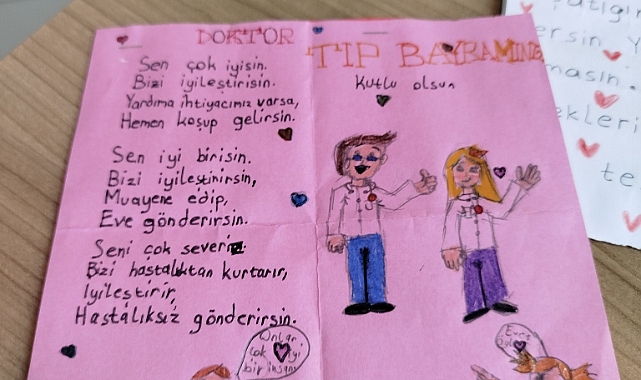 DOKTOR
Sen çok iyisin.
Bizi iyileştirisin.
Yardıma ihtiyacımız varsa,
Hemen koşup gelirsin.
Sen iyi birisin.
Bizi iyileştirirsin,
Muayene edip,
Eve gönderirsin.
Seni çok severiz.
Bizi hastalıktan kurtarır,
İyileştirir,
Hastalıksız gönderirsin.
Onlar
çok iyi
bir insan
TIP BAYRAMINIZ
Kutlu olsun
Evet
öyle
ersin
masın.
ekleri
te